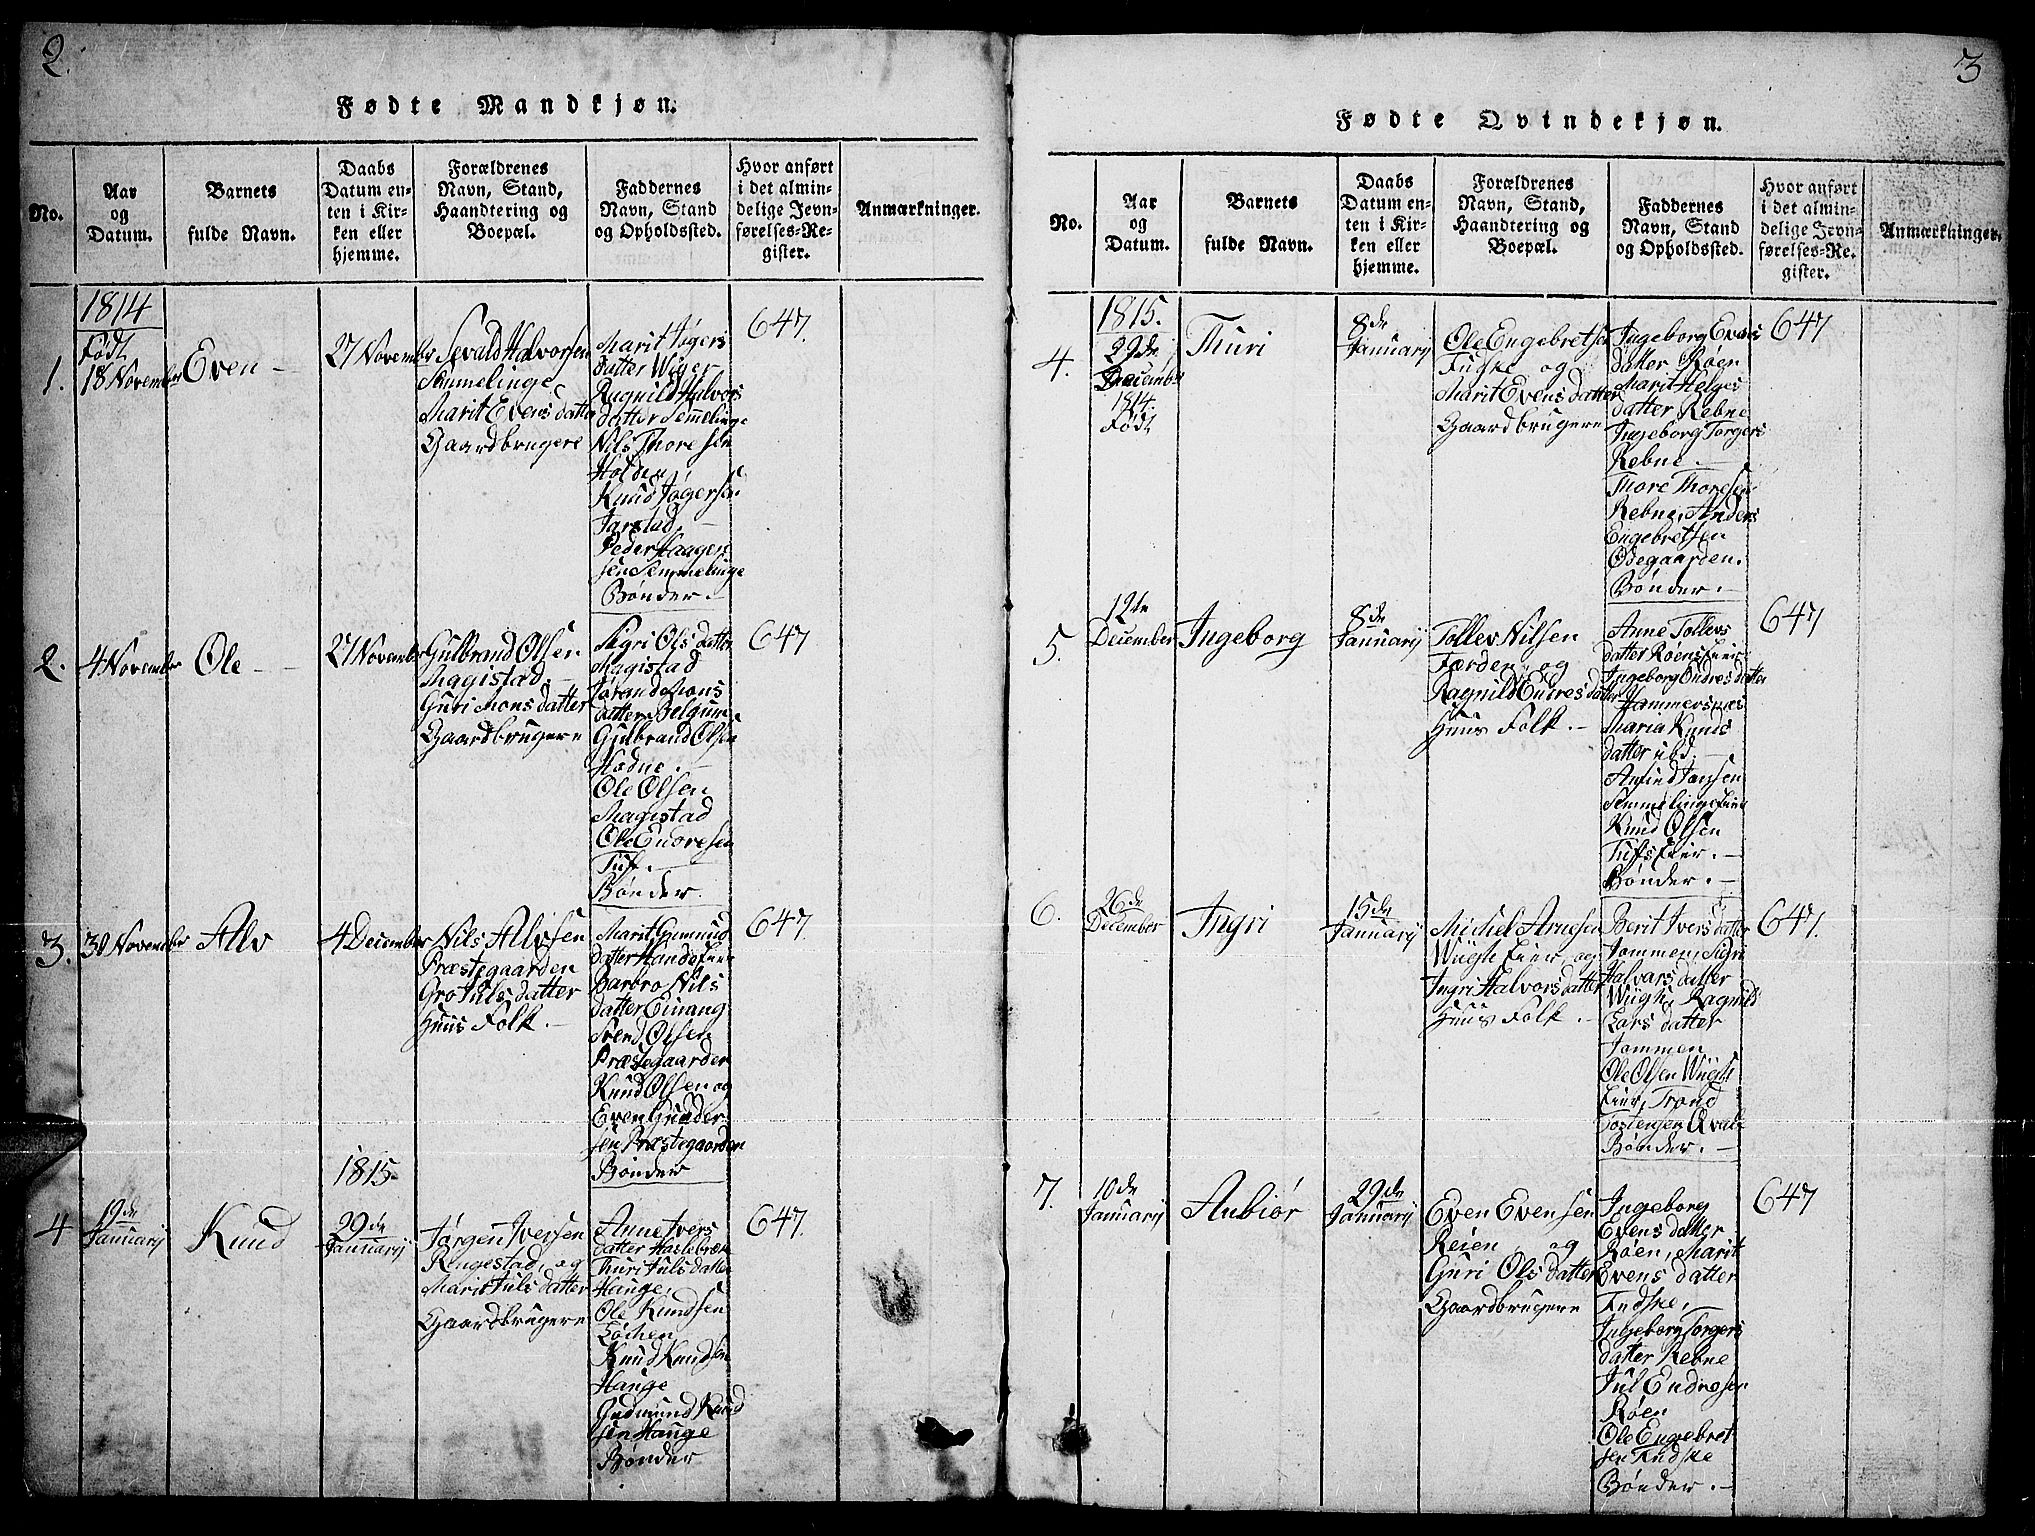 2.
Fødte Mandkjøn.
No.
Aar
og
Datum.
Barnets
fulde Navn.
Daabs
Datum en-
ten i Kir-
ken eller
hjemme.
Forældrenes
Navn, Stand,
Haandtering og
Boepæl.
Faddernes
Navn, Stand
og Opholdssted.
Hvor anført
i det almin-
delige Jevn-
førelses-Re-
gister.
Anmærkninger.
1.
1814
Født
18 November
Even
27 November
Sevald Halvorsen
Semmelinge
Marit Evens datter
Gaardbrugere
Marit Jøgers
datter Wiger
Ragnild Halvors
datter Semmelinge
Nils Thoresen
Holden
Knud Jøgersen
Jarstad.
Peder Haagen
sen Semmelinge
Bønder.
647.
2.
4 November
Ole
27 November
Gulbrand Olsen
Magistad
Guri Mons datter
Gaardbrugere
Sigri Ols datter
Magistad
Jørand Mons
datter Belgum
Gulbrand Olsen
Hødne.
Ole Olsen
Magistad
Ole Endresen
Tuft.
Bønder
647
3.
30 November
Alv
4 December
Nils Alvsen
Præstegaarden
Gro Juls datter
Huus Folk.
Marit Gumund
datter Hande Eier
Barbro Nils
datter Einang
Svend Olsen
Præstegaarden
Knud Olsen og
Even Gunder-
sen Præstegaarden
Bønder
647
4
19de
Januarij
Knud
1815.
29de
Januarij
Jørgen Iversen
Ringestad, og
Marit Juls datter
Gaardbrugere
Anne Ivers
datter Haslebræk
Thuri Juls datter
Hauge,
Ole Knudsen
Løchen
Knud Knudsen
Hauge
Gudmund Knud
sen Hauge
Bønder
647.
3
Fødte Qvindekjøn.
No.
Aar
og
Datum.
Barnets
fulde Navn.
Daabs
Datum en-
ten i Kir-
ken eller
hjemme.
Forældrenes
Navn, Stand,
Haandtering og
Boepæl.
Faddernes
Navn, Stand
og Opholdssted.
Hvor anført
i det almin-
delige Jevn-
førelses-Re-
gister.
Anmærkninger.
4.
1815.
29de
December
1814.
Født
Thuri
8de
Januarij
Ole Engebretsen
Fudske og
Marit Evens datter
Gaardbrugere
Ingeborg Evens
datter Røen
Marit Helges
datter Rebne
Ingeborg Torgers
Rebne.
Thore Thoresen
Rebne, Anders
Engebretsen
Ødegaarden.
Bønder.
647
5.
12te
December
Ingeborg
8de
Januarij
Tollev Nilsen
Førden og
Ragnild Endres datter
Huus Folk.
Anne Tollevs
datter Røens Eier
Ingeborg Endres datter
Hammersnes
Maria Knuds
datter ibd.
Amund Jansen
Semmelinge Eier
Knud Olsen
Tufts Eier.
Bønder.
647
6.
26de
December
Ingri
15de
Januarij
Michel Arnesen
Wiigh Eier, og
Ingri Halvors datter
Huus Folk.
Berit Ivers datter
Jommen, Sigri
Halvors datter
Wiigh, Ragnild
Lars datter
Jommen
Ole Olsen Wiigh
Eier, Trond
Tostensen Qvale
Bønder.
647.
7.
10de
Januarij
Aubiør
29de
Januarij
Even Evensen
Reien og
Guri Ols datter
Gaardbrugere
Ingeborg
Evens datter
Røen, Marit
Evens datter
Fudske,
Ingeborg Torgers
datter Rebne
Jul Endresen
Røen
Ole Engebret
sen Fudske
Bønder.
647